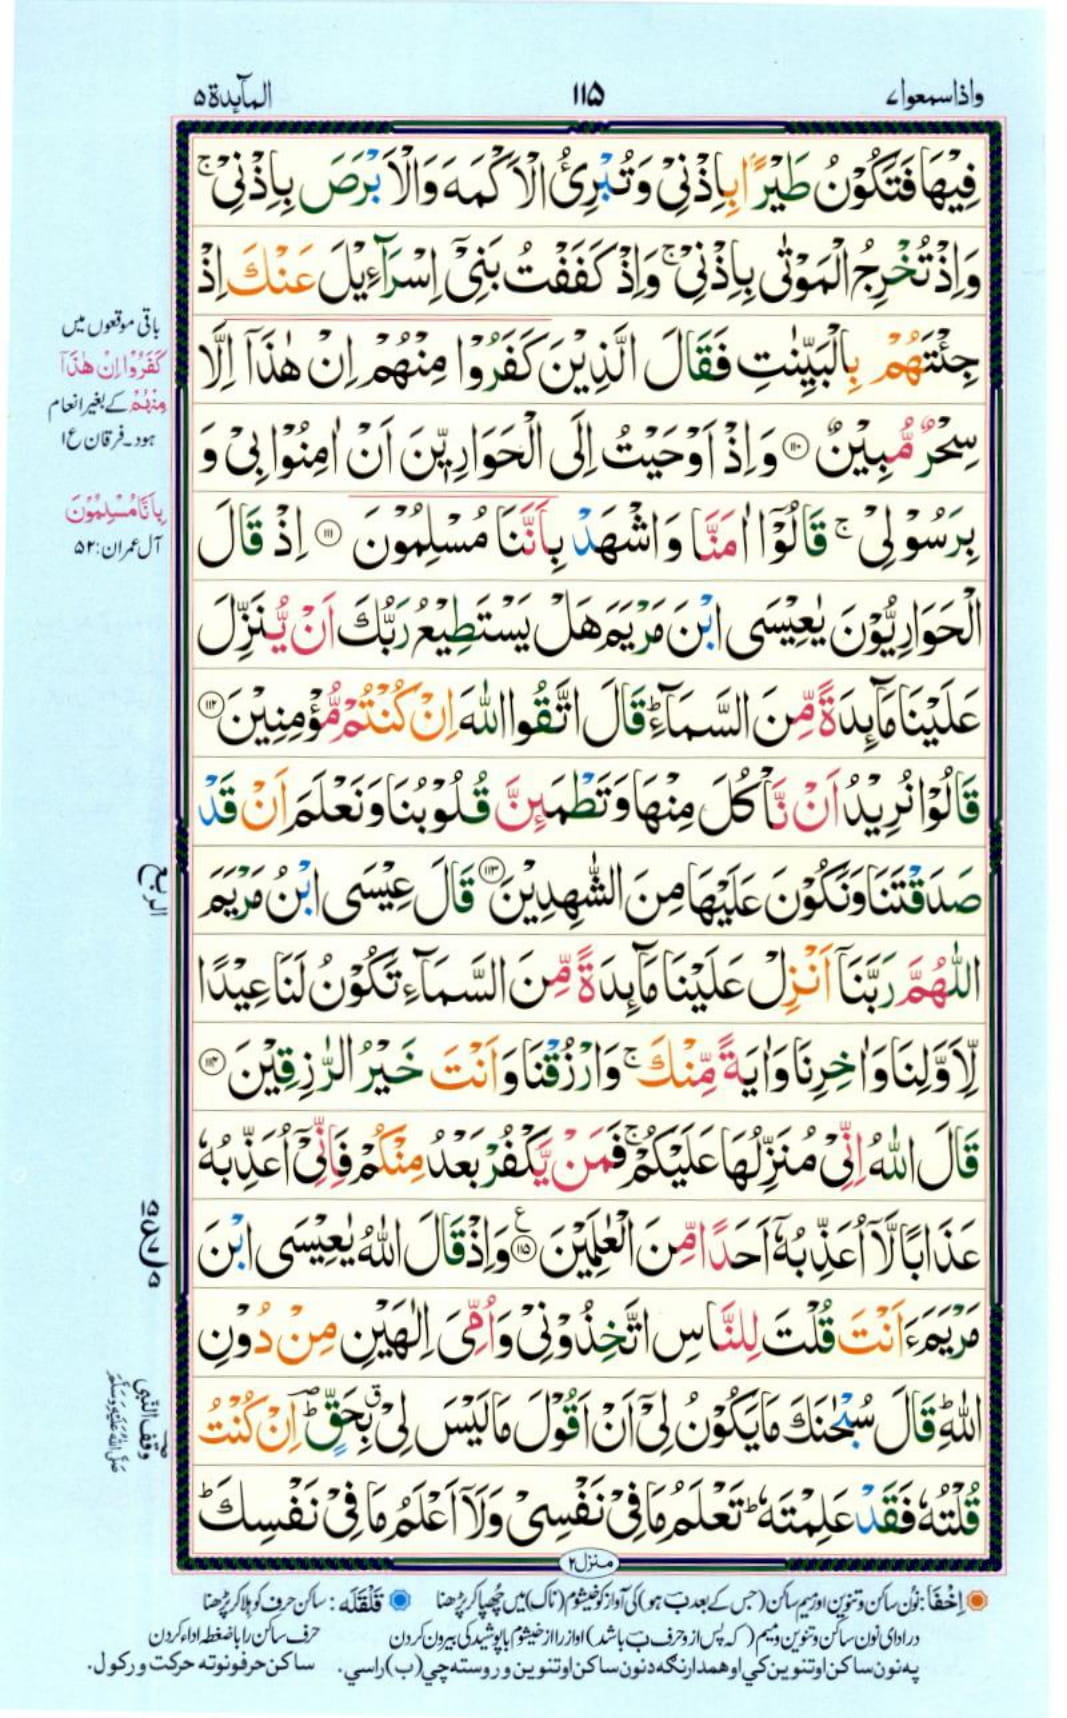 واذاسمعوا٧
١١٥
المآىِٕدة٥
فِيْهَا فَتَكُوْنُ طَيْرًۢا بِاِذْنِيْ وَتُبْرِئُ الْاَكْمَهَ وَالْاَبْرَصَ بِاِذْنِيْ ۚ
وَاِذْ تُخْرِجُ الْمَوْتٰى بِاِذْنِيْ ۚ وَاِذْ كَفَفْتُ بَنِيْٓ اِسْرَآءِيْلَ عَنْكَ اِذْ
جِئْتَهُمْ بِالْبَيِّنٰتِ فَقَالَ الَّذِيْنَ كَفَرُوْا مِنْهُمْ اِنْ هٰذَآ اِلَّا
سِحْرٌ مُّبِيْنٌ ۝١١٠ وَاِذْ اَوْحَيْتُ اِلَى الْحَوَارِيّٖنَ اَنْ اٰمِنُوْا بِيْ وَ
بِرَسُوْلِيْ ۚ قَالُوْٓا اٰمَنَّا وَاشْهَدْ بِاَنَّنَا مُسْلِمُوْنَ ۝١١١ اِذْ قَالَ
الْحَوَارِيُّوْنَ يٰعِيْسَى ابْنَ مَرْيَمَ هَلْ يَسْتَطِيْعُ رَبُّكَ اَنْ يُّنَزِّلَ
عَلَيْنَا مَآىِٕدَةً مِّنَ السَّمَآءِ ؕ قَالَ اتَّقُوا اللّٰهَ اِنْ كُنْتُمْ مُّؤْمِنِيْنَ ۝١١٢
قَالُوْا نُرِيْدُ اَنْ نَّاْكُلَ مِنْهَا وَتَطْمَىِٕنَّ قُلُوْبُنَا وَنَعْلَمَ اَنْ قَدْ
صَدَقْتَنَا وَنَكُوْنَ عَلَيْهَا مِنَ الشّٰهِدِيْنَ ۝١١٣ قَالَ عِيْسَى ابْنُ مَرْيَمَ
اللّٰهُمَّ رَبَّنَآ اَنْزِلْ عَلَيْنَا مَآىِٕدَةً مِّنَ السَّمَآءِ تَكُوْنُ لَنَا عِيْدًا
لِّاَوَّلِنَا وَاٰخِرِنَا وَاٰيَةً مِّنْكَ ۚ وَارْزُقْنَا وَاَنْتَ خَيْرُ الرّٰزِقِيْنَ ۝١١٤
قَالَ اللّٰهُ اِنِّيْ مُنَزِّلُهَا عَلَيْكُمْ ۚ فَمَنْ يَّكْفُرْ بَعْدُ مِنْكُمْ فَاِنِّيْٓ اُعَذِّبُهٗ
عَذَابًا لَّآ اُعَذِّبُهٗٓ اَحَدًا مِّنَ الْعٰلَمِيْنَ ۝١١٥ ع وَاِذْ قَالَ اللّٰهُ يٰعِيْسَى ابْنَ
مَرْيَمَ ءَاَنْتَ قُلْتَ لِلنَّاسِ اتَّخِذُوْنِيْ وَاُمِّيَ اِلٰهَيْنِ مِنْ دُوْنِ
اللّٰهِ ؕ قَالَ سُبْحٰنَكَ مَا يَكُوْنُ لِيْٓ اَنْ اَقُوْلَ مَا لَيْسَ لِيْ ق بِحَقٍّ ؕ اِنْ كُنْتُ
قُلْتُهٗ فَقَدْ عَلِمْتَهٗ ؕ تَعْلَمُ مَا فِيْ نَفْسِيْ وَلَآ اَعْلَمُ مَا فِيْ نَفْسِكَ ؕ
باقی موقعوں میں
كَفَرُوْا اِنْ هٰذَآ
مِنْهُمْ کے بغیر انعام
ہود۔فرقان ع۱
بِاَنَّا مُسْلِمُوْنَ
آل عمران:۵۲
الربع
وقف النبی
صلی اللہ علیہ وسلم
منزل۲
اِخْفَا: نُون ساکن و تنوین اور میم ساکن (جس کے بعد ب ہو) کی آواز کو خیشوم (ناک) میں چُھپا کر پڑھنا
قَلْقَلَہ: ساکن حرف کو ہلا کر پڑھنا
در ادای نون ساکن و تنوین و میم (که پس از و حرف ب باشد) اواز را از خیشوم باپوشیدگی بیرون کردن
حرف ساکن را باضغطه ادا، کردن
په نون ساکن او تنوین کي او همدارنګه د نون ساکن او تنوین وروسته چي (ب) راسي.
ساکن حرفونو ته حرکت ورکول.